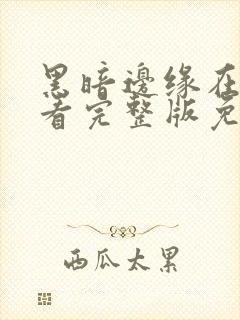 黑暗邊缘在
看完整版免
西瓜太累